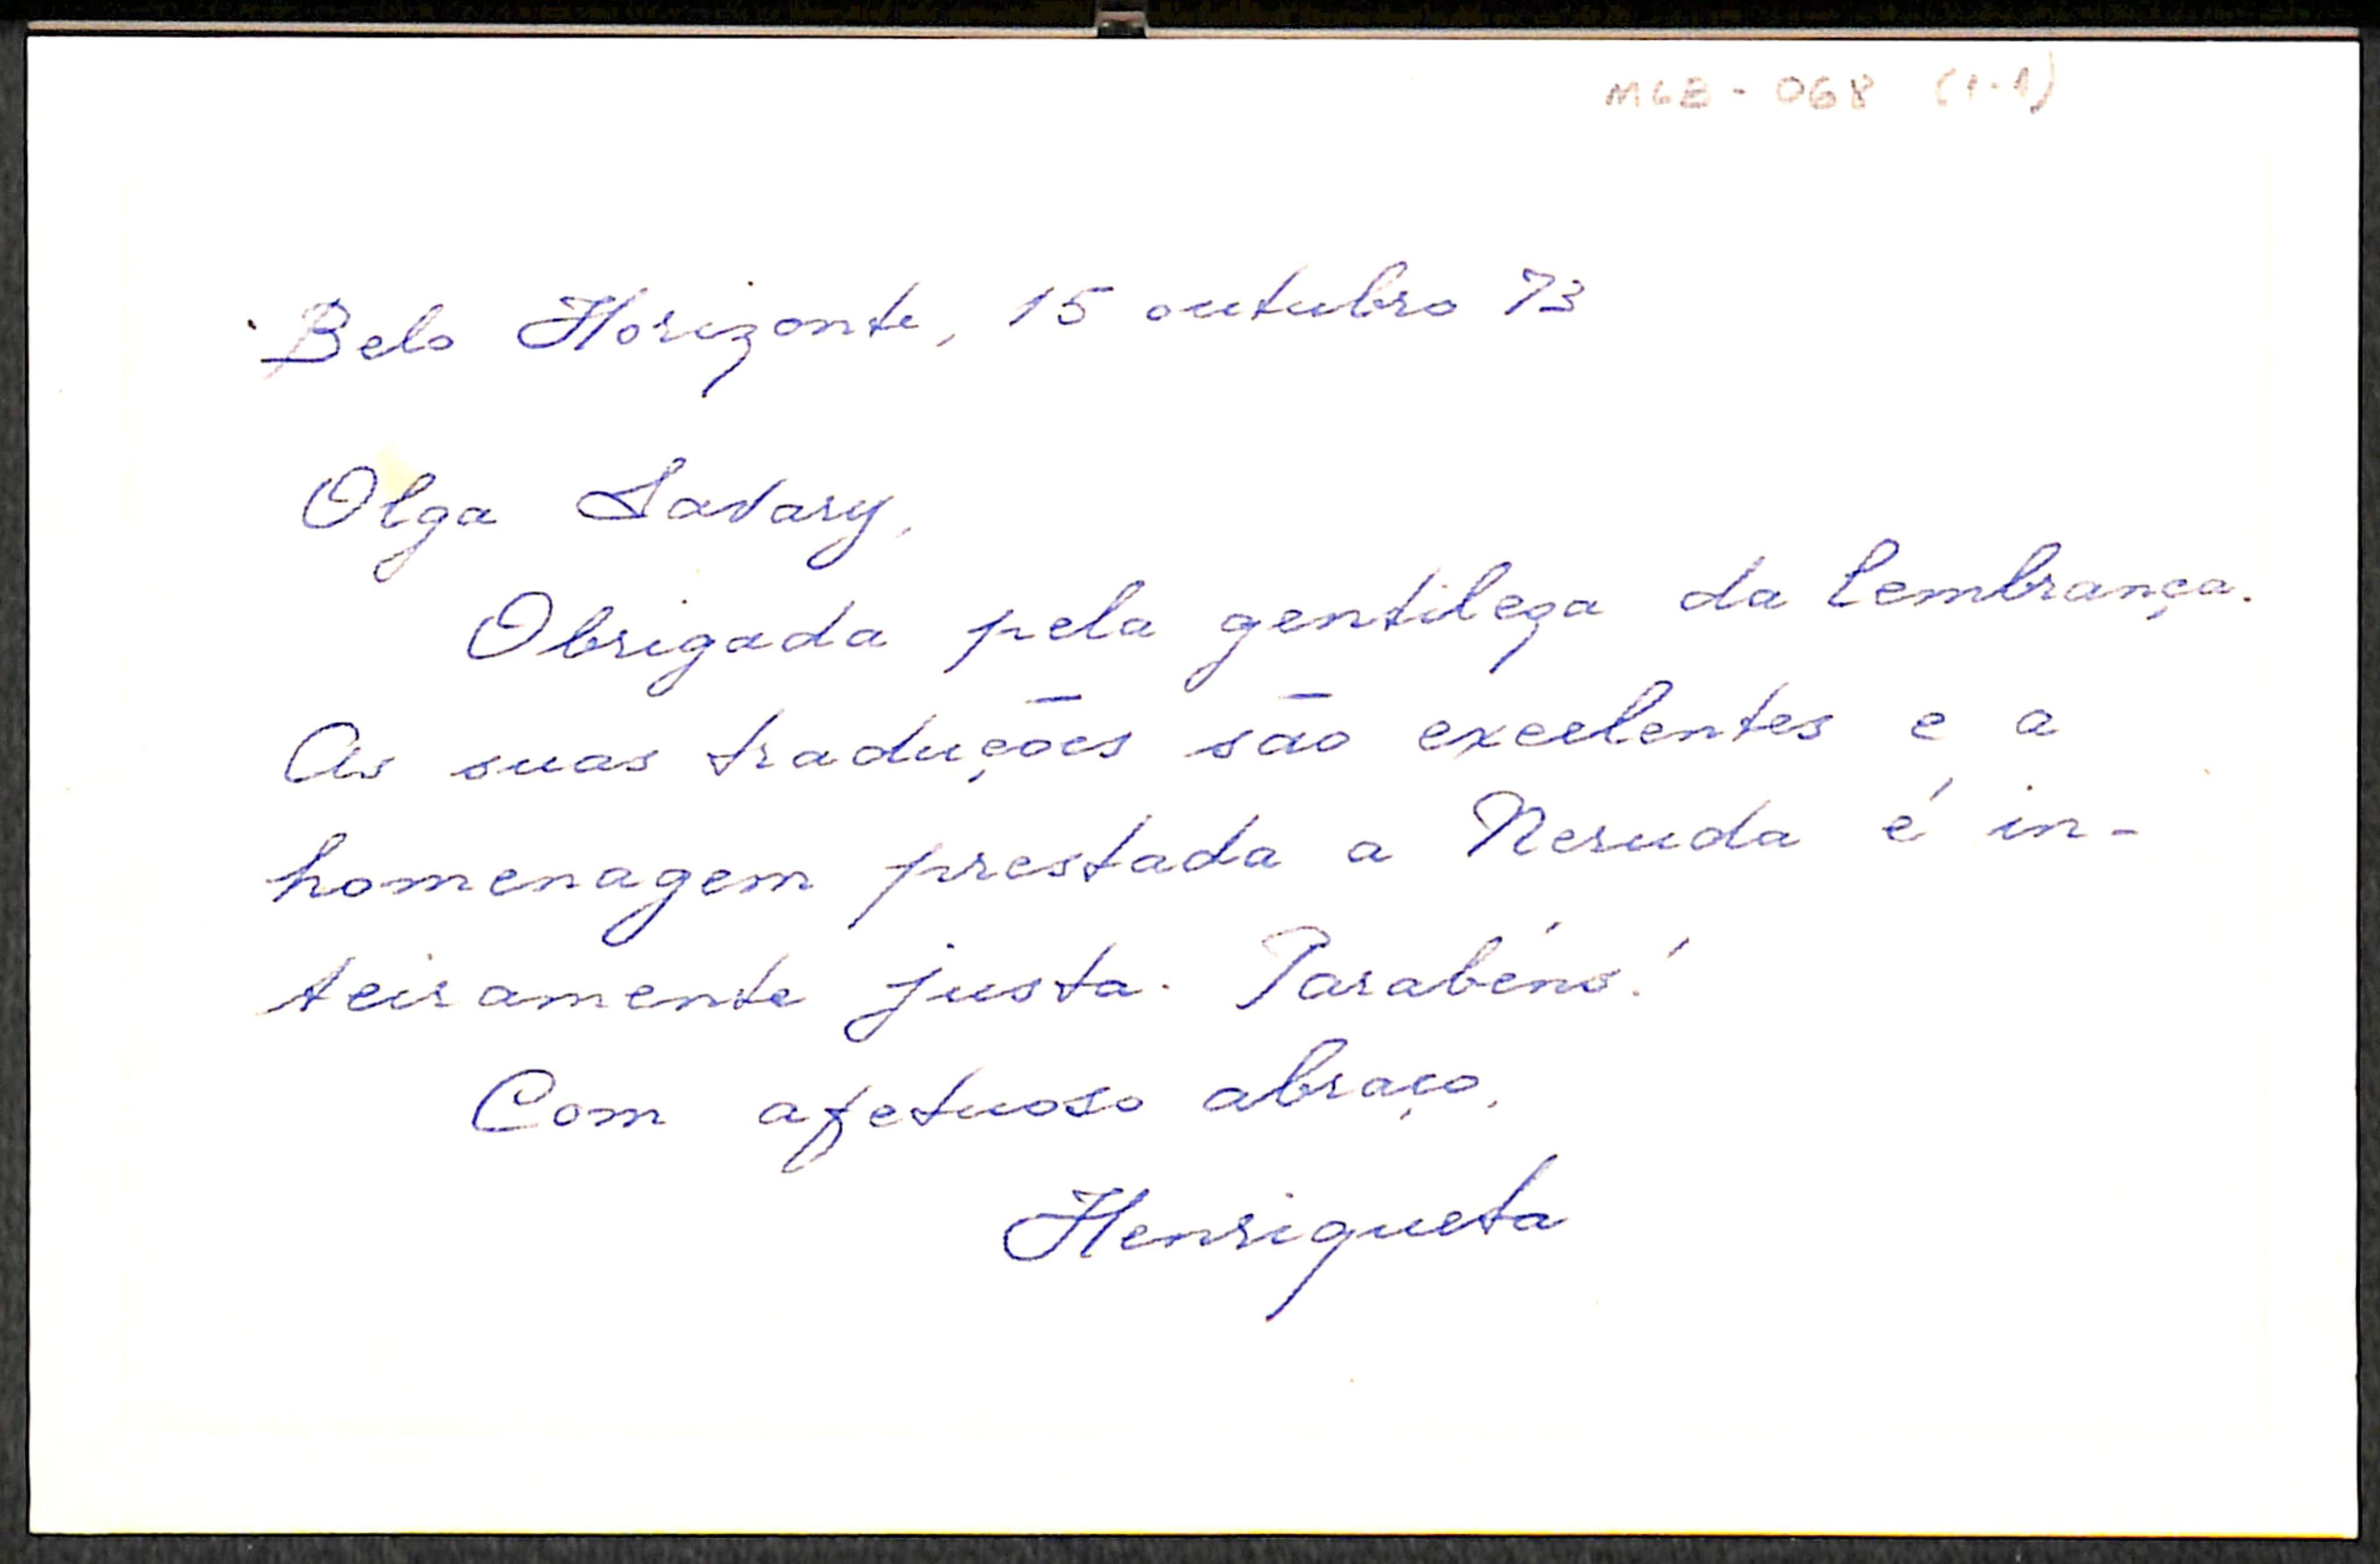 MLB - 068 (1-1)
Belo Horizonte, 15 outubro 73
Olga Savary,
Obrigada pela gentileza da lembrança.
As suas traduções são excelentes e a
homenagem prestada a Neruda é in-
teiramente justa. Parabéns!
Com afetuoso abraço,
Henriqueta